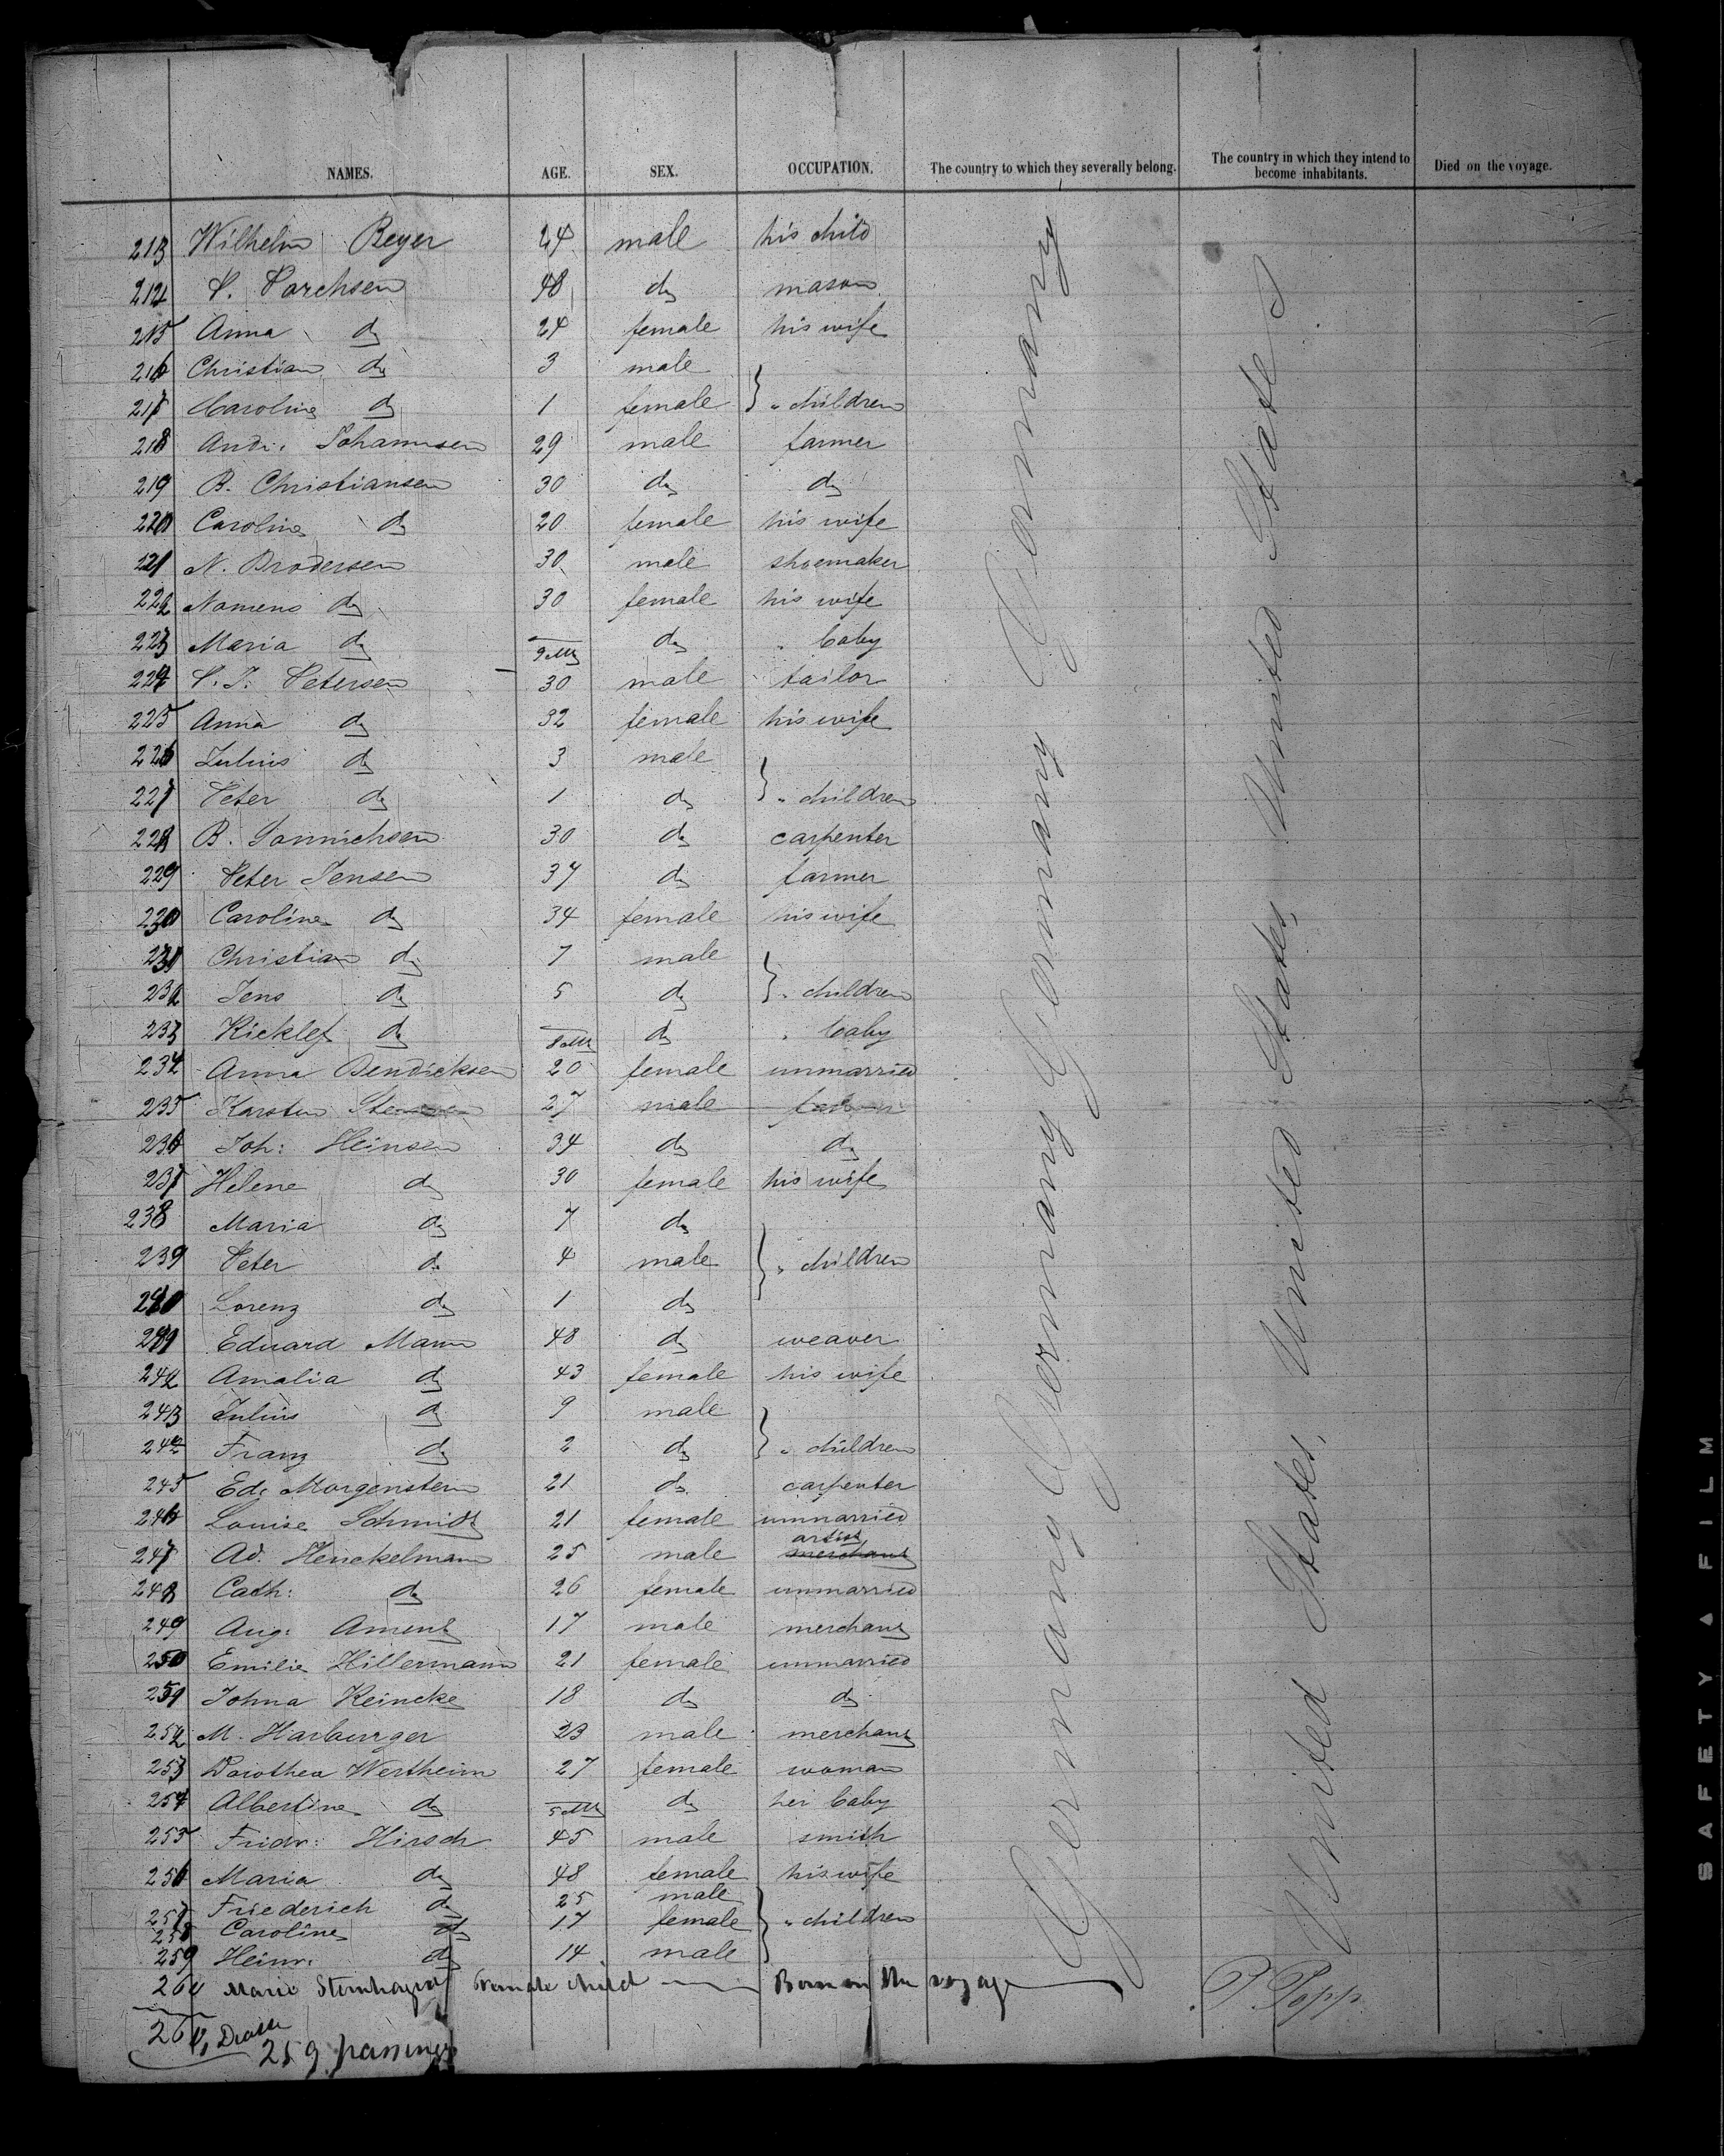 NAMES. AGE. SEX. OCCUPATION. The country to which they severally belong. The country in which they intend to become inhabitants. Died on the voyage.
213 Wilhelm Beyer 24 male his child
214 P. Porchsen 48 do mason
215 Anna do 24 female his wife
216 Christian do 3 male
217 Caroline do 1 female } " children
218 Andr. Johannsen 29 male farmer
219 B. Christiansen 30 do do
220 Caroline do 20 female his wife
221 N. Brodersen 30 male shoemaker
222 Nomens do 30 female his wife
223 Maria do 9 M do " baby
224 P. J. Petersen 30 male tailor
225 Anna do 32 female his wife
226 Julius do 3 male
227 Peter do 1 do } " children
228 B. Sonnichsen 30 do carpenter
229 Peter Jensen 37 do farmer
230 Caroline do 34 female his wife
231 Christian do 7 male
232 Jens do 5 do } " children
233 Ricklef do 8 M do " baby
234 Anna Bendicksen 20 female unmarried
235 Karsten 27 male farmer
236 Joh: Heinsen 34 do do
237 Helene do 30 female his wife
238 Maria do 7 do
239 Peter do 4 male } " children
240 Lorenz do 1 do
241 Eduard Mann 48 do weaver
242 Amalia do 43 female his wife
243 Julius do 9 male
244 Franz do 2 do } " children
245 Ed. Morgenstern 21 do carpenter
246 Louise Schmidt 21 female unmarried
247 Ad. Henckelmann 25 male merchant artist
248 Cath: do 26 female unmarried
249 Aug: Ament 17 male merchant
250 Emilie Hillermann 21 female unmarried
251 Johna Reincke 18 do do
252 M. Harburger 23 male merchant
253 Dorothea Wertheim 27 female woman
254 Albertine do 5 M do her baby
255 Fridr: Hirsch 45 male smith
256 Maria do 48 female his wife
257 Friederich do 25 male
258 Caroline do 17 female } " children
259 Heinr. do 14 male
260 Marie Sternhagen Female child Born on the voyage
260
259 passengers
Germany Germany Germany Germany
United States, United States, United States
P. Popp
SAFETY FILM